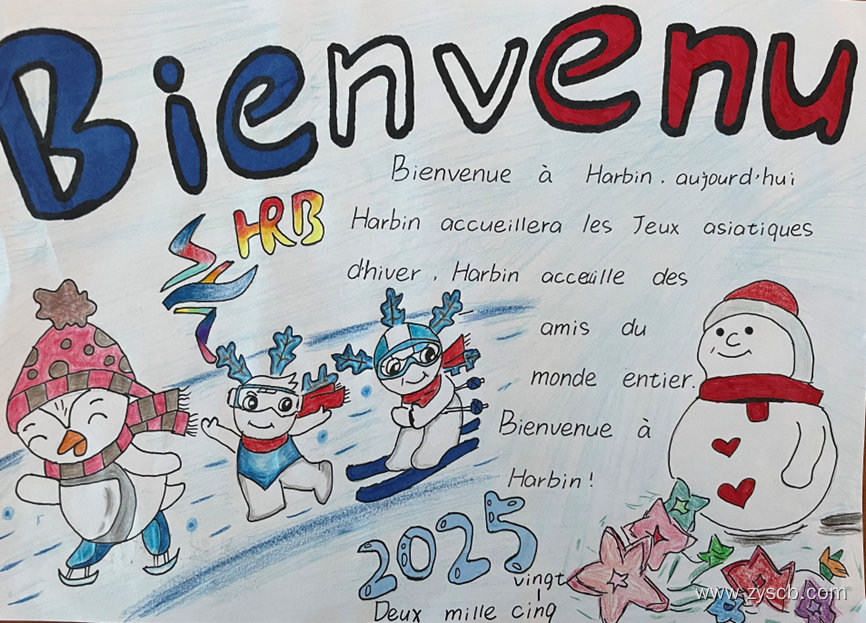 Bienvenu
Bienvenue à Harbin. aujourd'hui
HRB
Harbin accueillera les Jeux asiatiques
d'hiver. Harbin acceuille des
amis du
monde entier.
Bienvenue à
Harbin!
2025
vingt
Deux mille cinq
www.zyscb.com